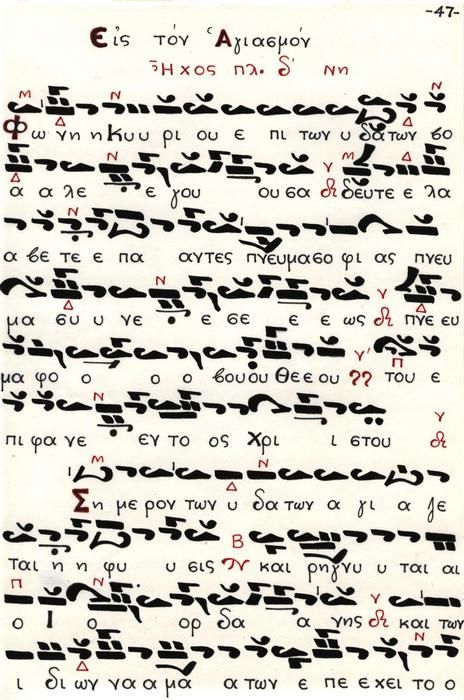 -47-
Εἰς τόν Ἁγιασμόν
Ἦχος πλ. δ΄ Νη
Φω νη η Κυ υ ρι ου ε πι των υ δα των βο
α α λε ε γου ου σα δευτε ε λα
α βε τε ε πα αντες πνευμα σο φι ας πνευ
μα συ υ νε ε σε ε ε ως πνε ευ
μα φο ο ο ο βου ου Θε ε ου του ε
πι φα νε εν το ος Χρι ι στου
Ση με ρον των υ δα των α γι α ζε
ται η η φυ υ σις και ρηγνυ υ ται αι
ο Ι ο ορ δα α νης και των
ι δι ων να α μα α των ε πε εχει το ο